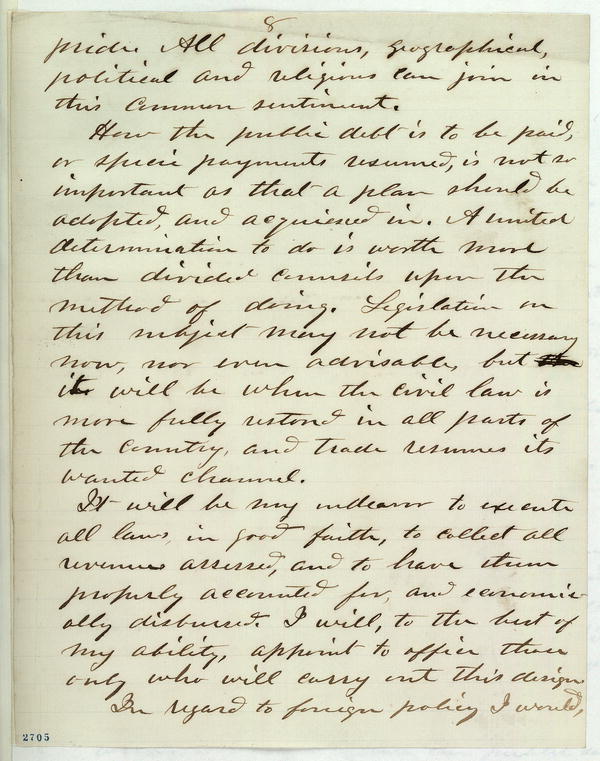 8
pride. All divisions, geographical,
political and religious can join in
this common sentiment.
How the public debt is to be paid,
or specie payments resumed, is not so
important as that a plan should be
adopted, and acquiesed in. A united
determination to do is worth more
than divided counsils upon the
method of doing. Legislation on
this subject may not be necessary
now, nor even advisable, but the
it will be when the civil law is
more fully restored in all parts of
the country, and trade resumes its
wanted channel.
It will be my endeavor to execute
all laws, in good faith, to collect all
revenues assessed, and to have them
properly accounted for, and economic-
ally disbursed. I will, to the best of
my ability, appoint to office those
only who will carry out this design
In regard to foreign policy I would,
2705